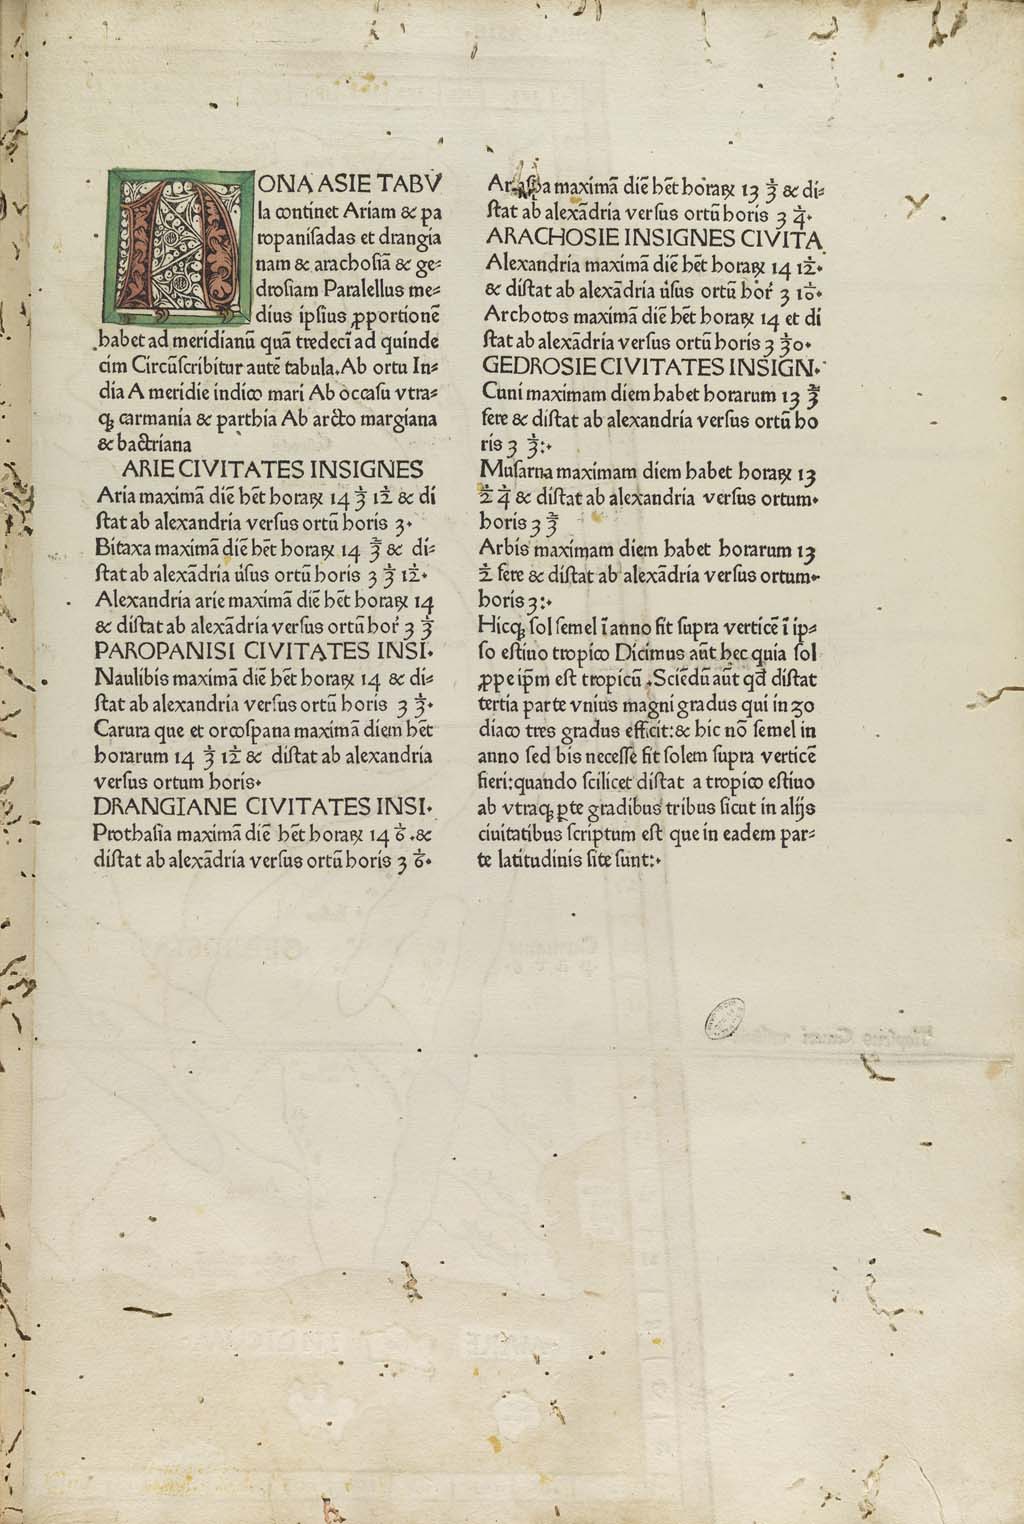 NONA ASIE TABV
la continet Ariam & pa
ropanisadas et drangia
nam & arachosiā & ge⸗
drosiam Paralellus me⸗
dius ipsius ꝓportionē
habet ad meridianū quā tredecī ad quinde
cim Circūscribitur autē tabula. Ab ortu In⸗
dia A meridie indico mari Ab occasu vtra⸗
qꝫ carmania & parthia Ab arcto margiana
& bactriana
ARIE CIVITATES INSIGNES
Aria maximā diē hēt horaꝝ 14 ⅓ 1/12 & di
stat ab alexandria versus ortū horis 3·
Bitaxa maximā diē hēt horaꝝ 14 ⅔ & di⸗
stat ab alexādria ūsus ortū horis 3 ⅓ 1/12·
Alexandria arie maximā diē hēt horaꝝ 14
& distat ab alexādria versus ortū hoŕ 3 ⅓
PAROPANISI CIVITATES INSI·
Naulibis maximā diē hēt horaꝝ 14 & di⸗
stat ab alexandria versus ortū horis 3 ⅓·
Carura que et orcospana maximā diem hēt
horarum 14 ⅓ 1/12 & distat ab alexandria
versus ortum horis·
DRANGIANE CIVITATES INSI·
Prothasia maximā diē hēt horaꝝ 14 ⅙ .&
distat ab alexādria versus ortū horis 3 ⅙·
maximā diē hēt horaꝝ 13 ⅔ & di⸗
stat ab alexādria versus ortū horis 3 ¼·
ARACHOSIE INSIGNES CIVITA
Alexandria maximā diē hēt horaꝝ 14 1/12·
& distat ab alexādria ūsus ortū hoŕ 3 1/10·
Archotos maximā diē hēt horaꝝ 14 et di
stat ab alexādria versus ortū horis 3 1/30·
GEDROSIE CIVITATES INSIGN·
Cuni maximam diem habet horarum 13 ⅔
fere & distat ab alexandria versus ortū ho
ris 3 ⅓:·
Musarna maximam diem habet horaꝝ 13
½ ¼ & distat ab alexandria versus ortum·
horis 3 ⅔
Arbis maximam diem habet horarum 13
½ fere & distat ab alexādria versus ortum·
horis 3:·
Hicqꝫ sol semel ī anno fit supra verticē ī ip⸗
so estiuo tropico Dicimus aūt hec quia sol
ꝓpe ip̄m est tropicū . Sciēdū aūt qđ distat
tertia parte vnius magni gradus qui in zo
diaco tres gradus efficit: & hic nō semel in
anno sed bis necesse fit solem supra verticē
fieri: quando scilicet distat a tropico estiuo
ab vtraqꝫ ꝑte gradibus tribus sicut in alijs
ciuitatibus scriptum est que in eadem par⸗
te latitudinis site sunt:·